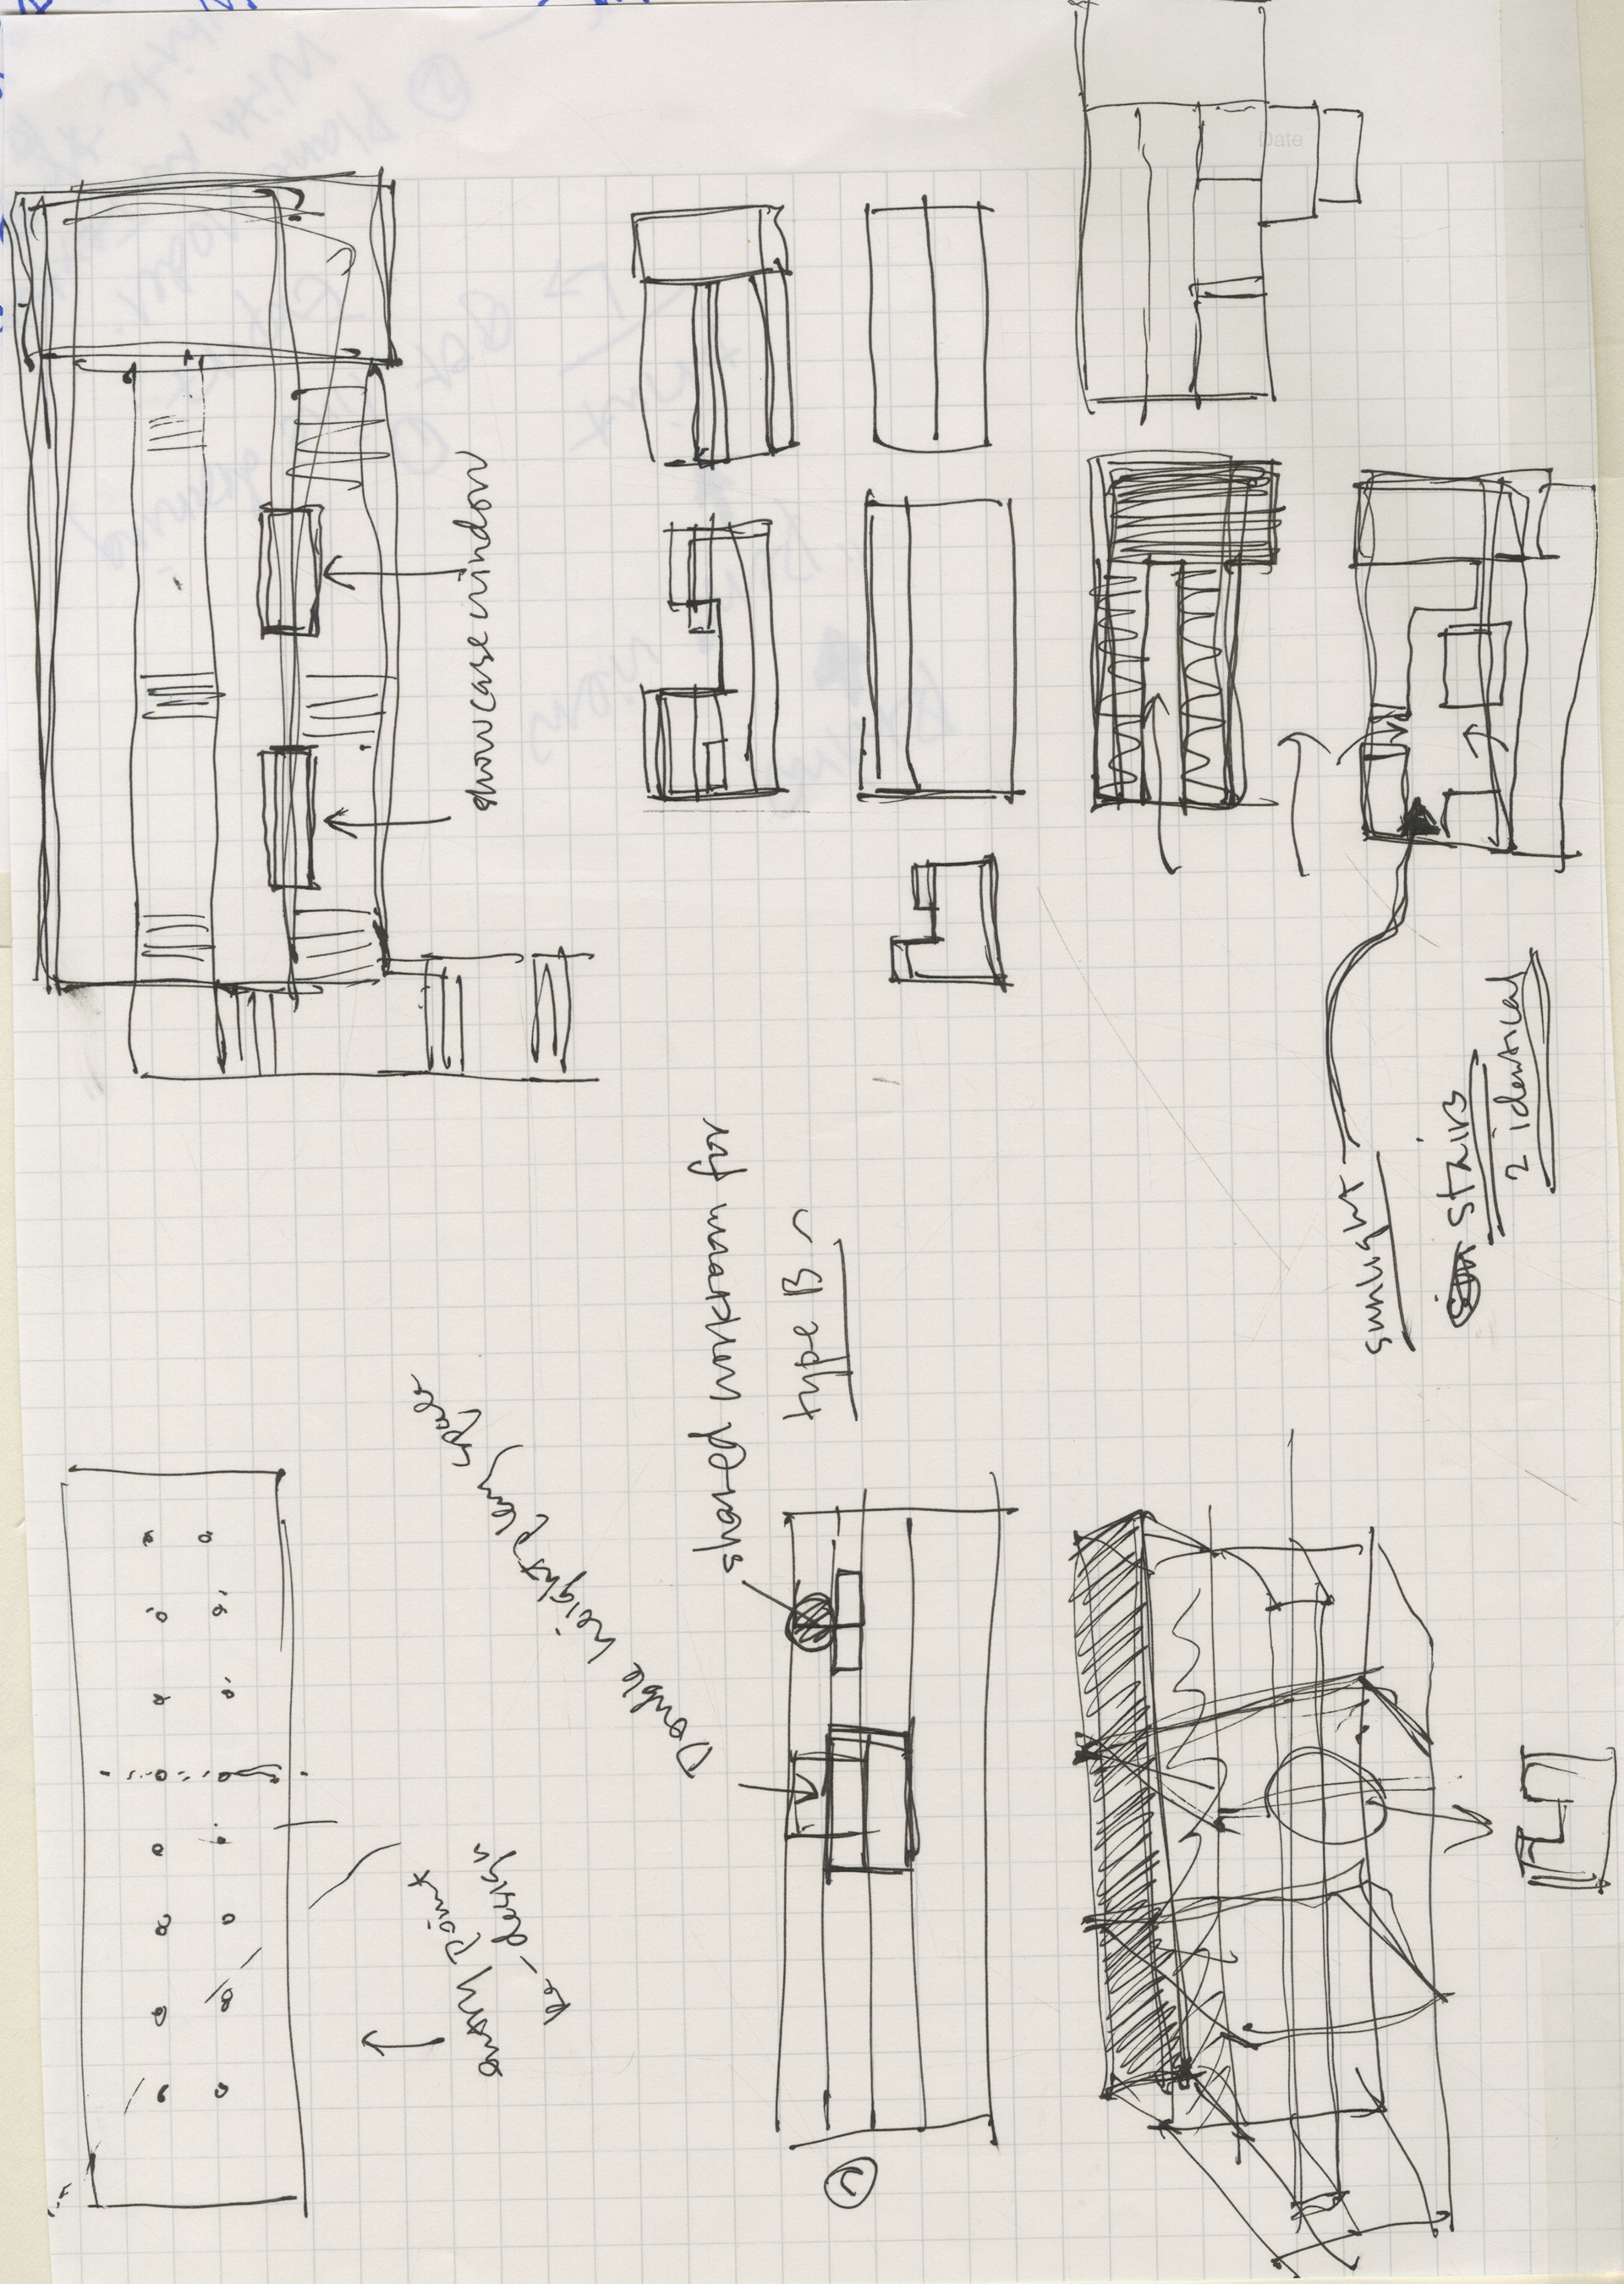 Date
showcase window
sunlight
stairs
2 identical
shared workroom for
type B
Double height play space
entry point
Re-design